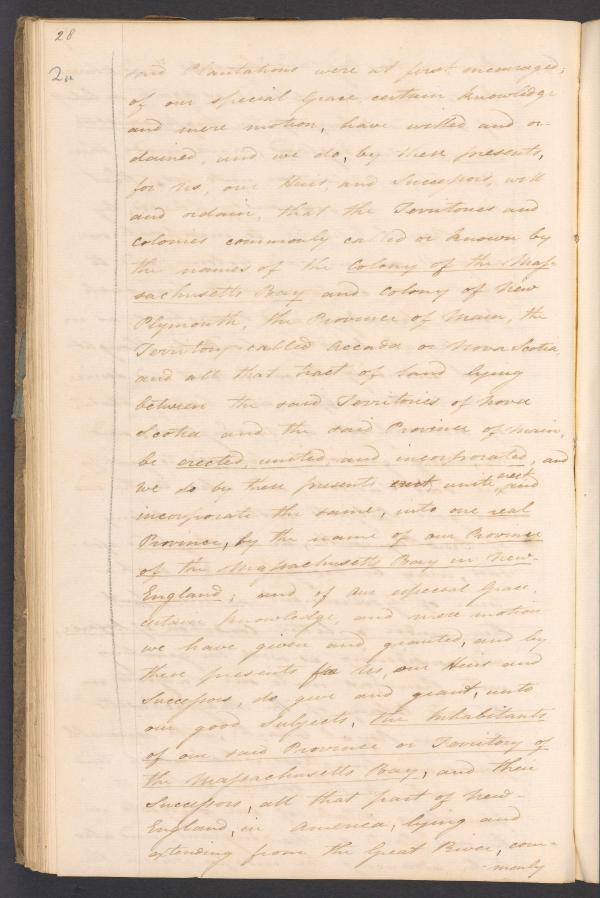 28
2n
said Plantations were at first encouraged;
of our special Grace, certain knowledge
and mere motion, have willed and or-
dained, and we do, by these presents,
for us, our Heirs, and Successors, will
and ordain, that the Territories and
colonies commonly called or known by
the names of the Colony of the Mas-
sachusetts Bay and Colony of New
Plymouth, the Province of Main, the
Territory called Accada or Nova Scotia,
and all that tract of land lying
between the said Territories of Nova
Scotia and the said Province of Main,
be erected, united and incorporated, and
we do by these presents unite, erect and
incorporate the same, into one real
Province, by the name of our Province
of the Massachusetts Bay in New-
England; and of our especial Grace,
certain knowledge, and mere motion
we have given and granted, and by
these presents for us, our Heirs and
Successors, do give and grant, unto
our good Subjects, the Inhabitants
of our said Province or Territory of
the Massachusetts Bay, and their
Successors, all that part of New-
England, in America, lying and
extending from the Great River, com-
monly